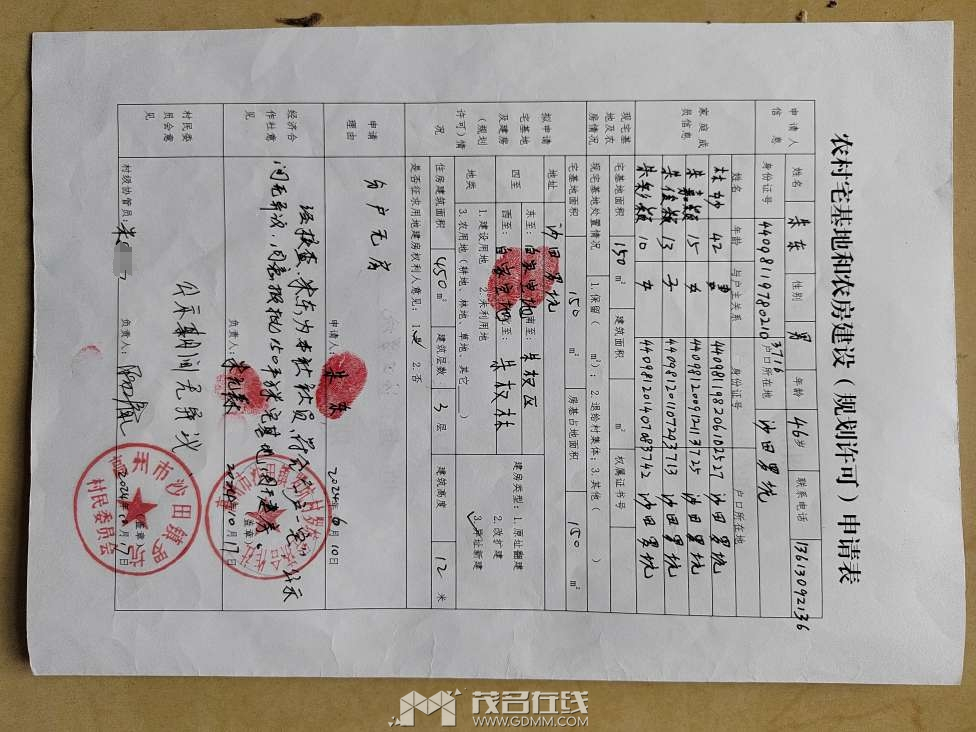 农村宅基地和农房建设（规划许可）申请表
申请人信息 姓名 朱东 性别 男 年龄 46岁 联系电话 13613092136
身份证号 440981197802103716 户口所在地 沙田男坑
家庭成员信息 姓名 年龄 与户主关系 身份证号 户口所在地
42 440981198206182527 沙田男坑
15 女 440981200912113725 沙田男坑
13 子 440981201107243713 沙田男坑
10 女 440981201407083742 沙田男坑
现宅基地及农房情况 宅基地面积 150 m² 建筑面积 m² 权属证书号
现宅基地处置情况 1.保留（ m²）；2.退给村集体；3.其他（ ）
拟申请宅基地及建房（规划许可）情况 宅基地面积 150 m² 房基占地面积 150 m²
地址 沙田男坑
四至 东至： 南至：朱权区 建房类型：1.原址翻建
西至： 北至：朱权本 2.改扩建
3.异址新建
地类 1.建设用地 2.未利用地
3.农用地（耕地、林地、草地、其它____）
住房建筑面积 450 m² 建筑层数 3 层 建筑高度 12 米
是否征求用地建房权利人意见：1.是 2.否
申请理由 分户无房
申请人：朱东 2024年6月10日
经济合作社意见 经核查，朱东为本社社员，符合 公示
间无异议，同意报批150平方米宅基地用于建房
负责人： 年10月17日
村民委员会意见 公示期间无异议
村级协管员：朱 负责人： 2024年 月17日
高州市沙田镇男坑
村民委员会
茂名在线
WWW.GDMM.COM